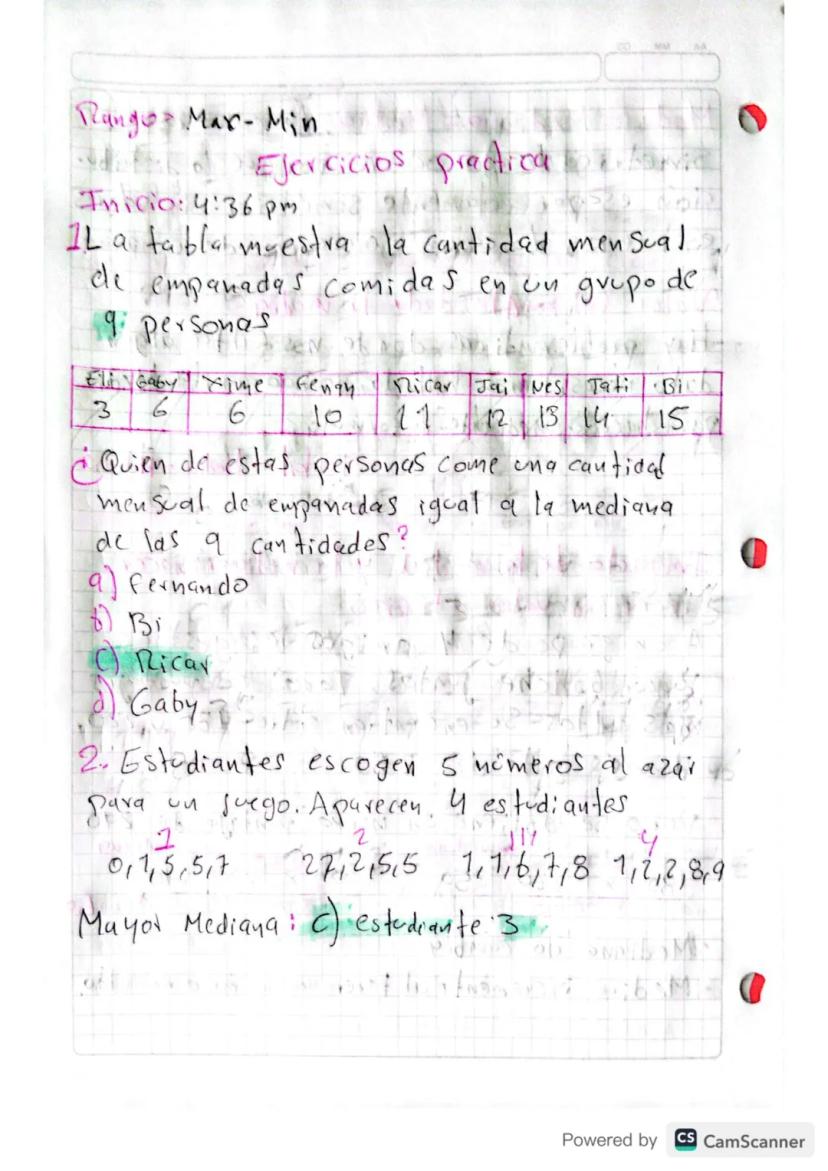 Rango= Max-Min
Ejercicios practica
Inicio: 4:36 pm
1 La tabla muestra la cantidad mensual
de empanadas comidas en un grupo de
9 personas
Eli Gaby Xime Ricar Jai Nes Tati Bi
3 6 6 10 11 12 13 14 15
¿Quien de estas personas come una cantidad
mensual de empanadas igual a la mediana
de las 9 cantidades?
a) Fernando
b) Bi
c) Ricar
d) Gaby
2. Estudiantes escogen 5 números al azar
para un juego. Aparecen 4 estudiantes
1 2 III 4
0,1,5,5,7 22,2,5,5 1,1,6,7,8 1,2,2,8,9
Mayor Mediana: c) estudiante 3
Powered by CS CamScanner